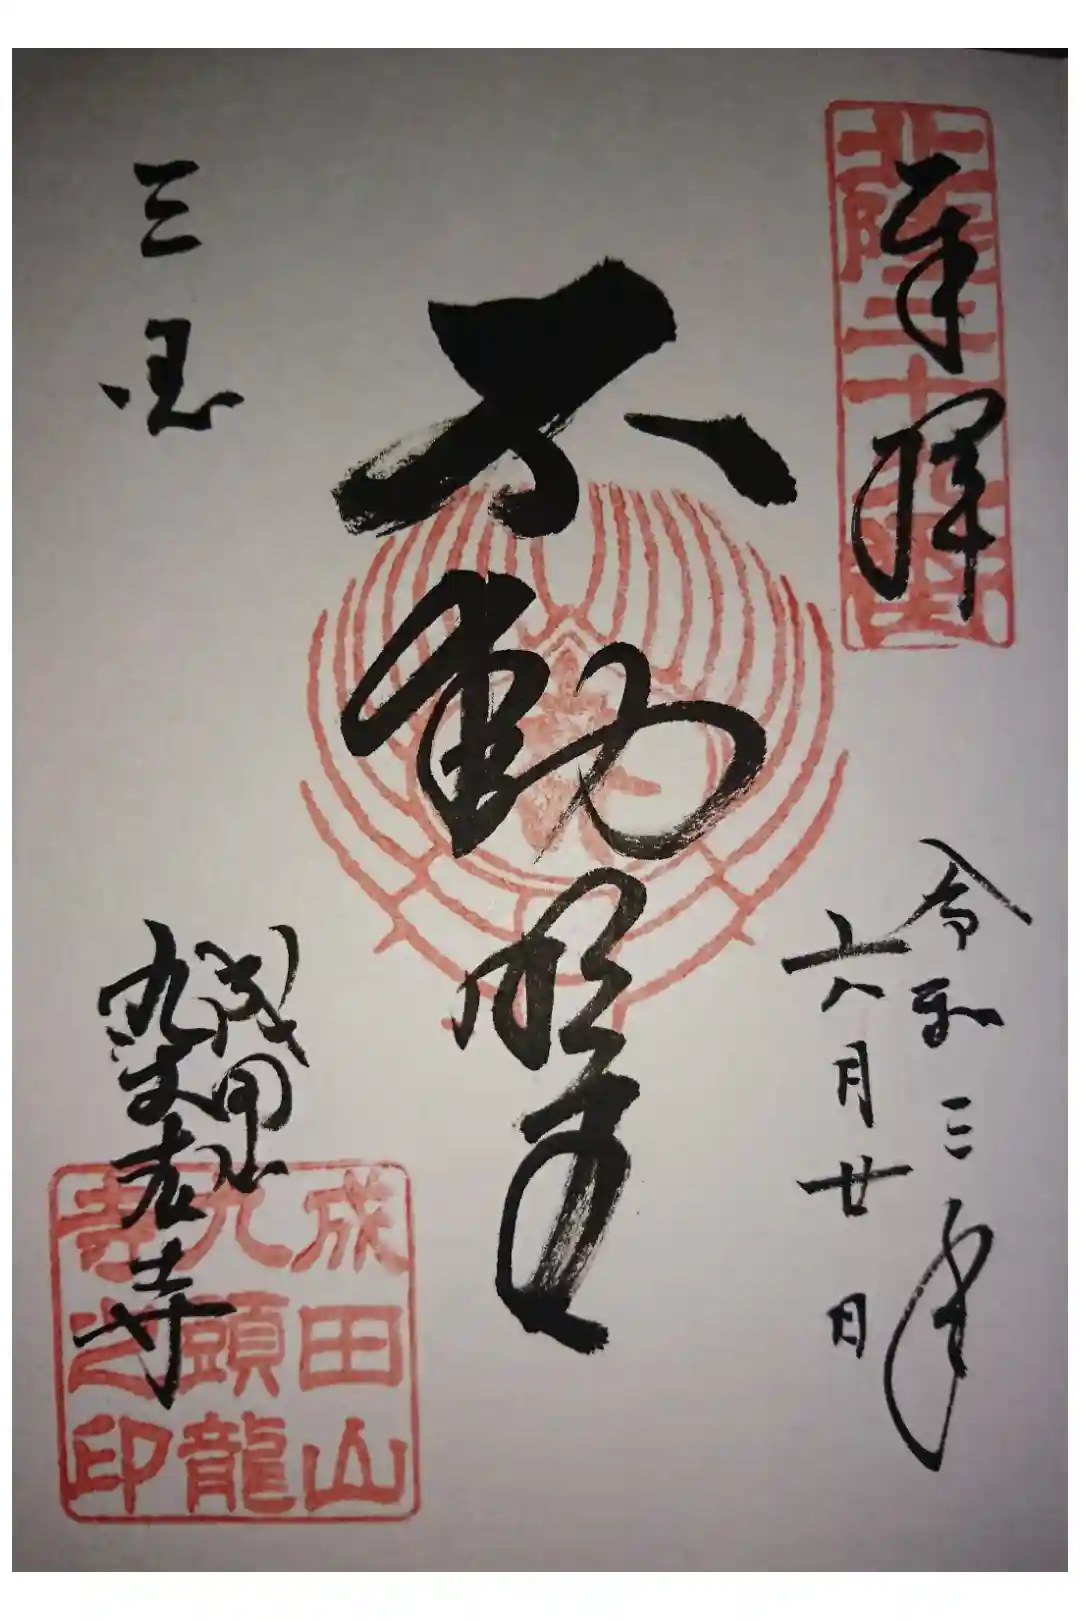 奉拝
北陸三十
令和三年
六月廿日
不動明王
三国
成田山
九頭龍寺
成田山
九頭龍
寺之印